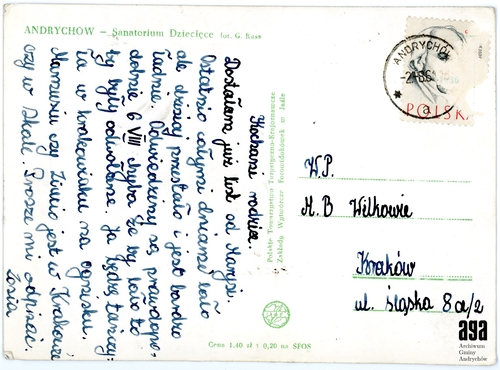 ANDRYCHÓW – Sanatorium Dziecięce fot. G. Russ
Kochani rodzice.
Dostałam już list od Marysi.
Ostatnio całymi dniami lało
ale dzisiaj przestało i jest bardzo
ładnie. Odwiedziny są prawdopo-
dobnie 6 VIII chyba że by lało to
by były odwołane. Ja będę tańczy-
ła w krakowiaku na ognisku.
Mamusiu czy Ziunio jest w Krakowie
czy w Skale. Proszę mi odpisać.
Zosia
Polskie Towarzystwo Turystyczno-Krajoznawcze
Zakłady Wytwórcze
w Jaśle
Cena 1.40 zł + 0,20 na SFOS
ANDRYCHÓW
a
POLSKA
W.P.
M. B Wilkowie
Kraków
ul. Śląska 8a/2
aga
Archiwum
Gminy
Andrychów